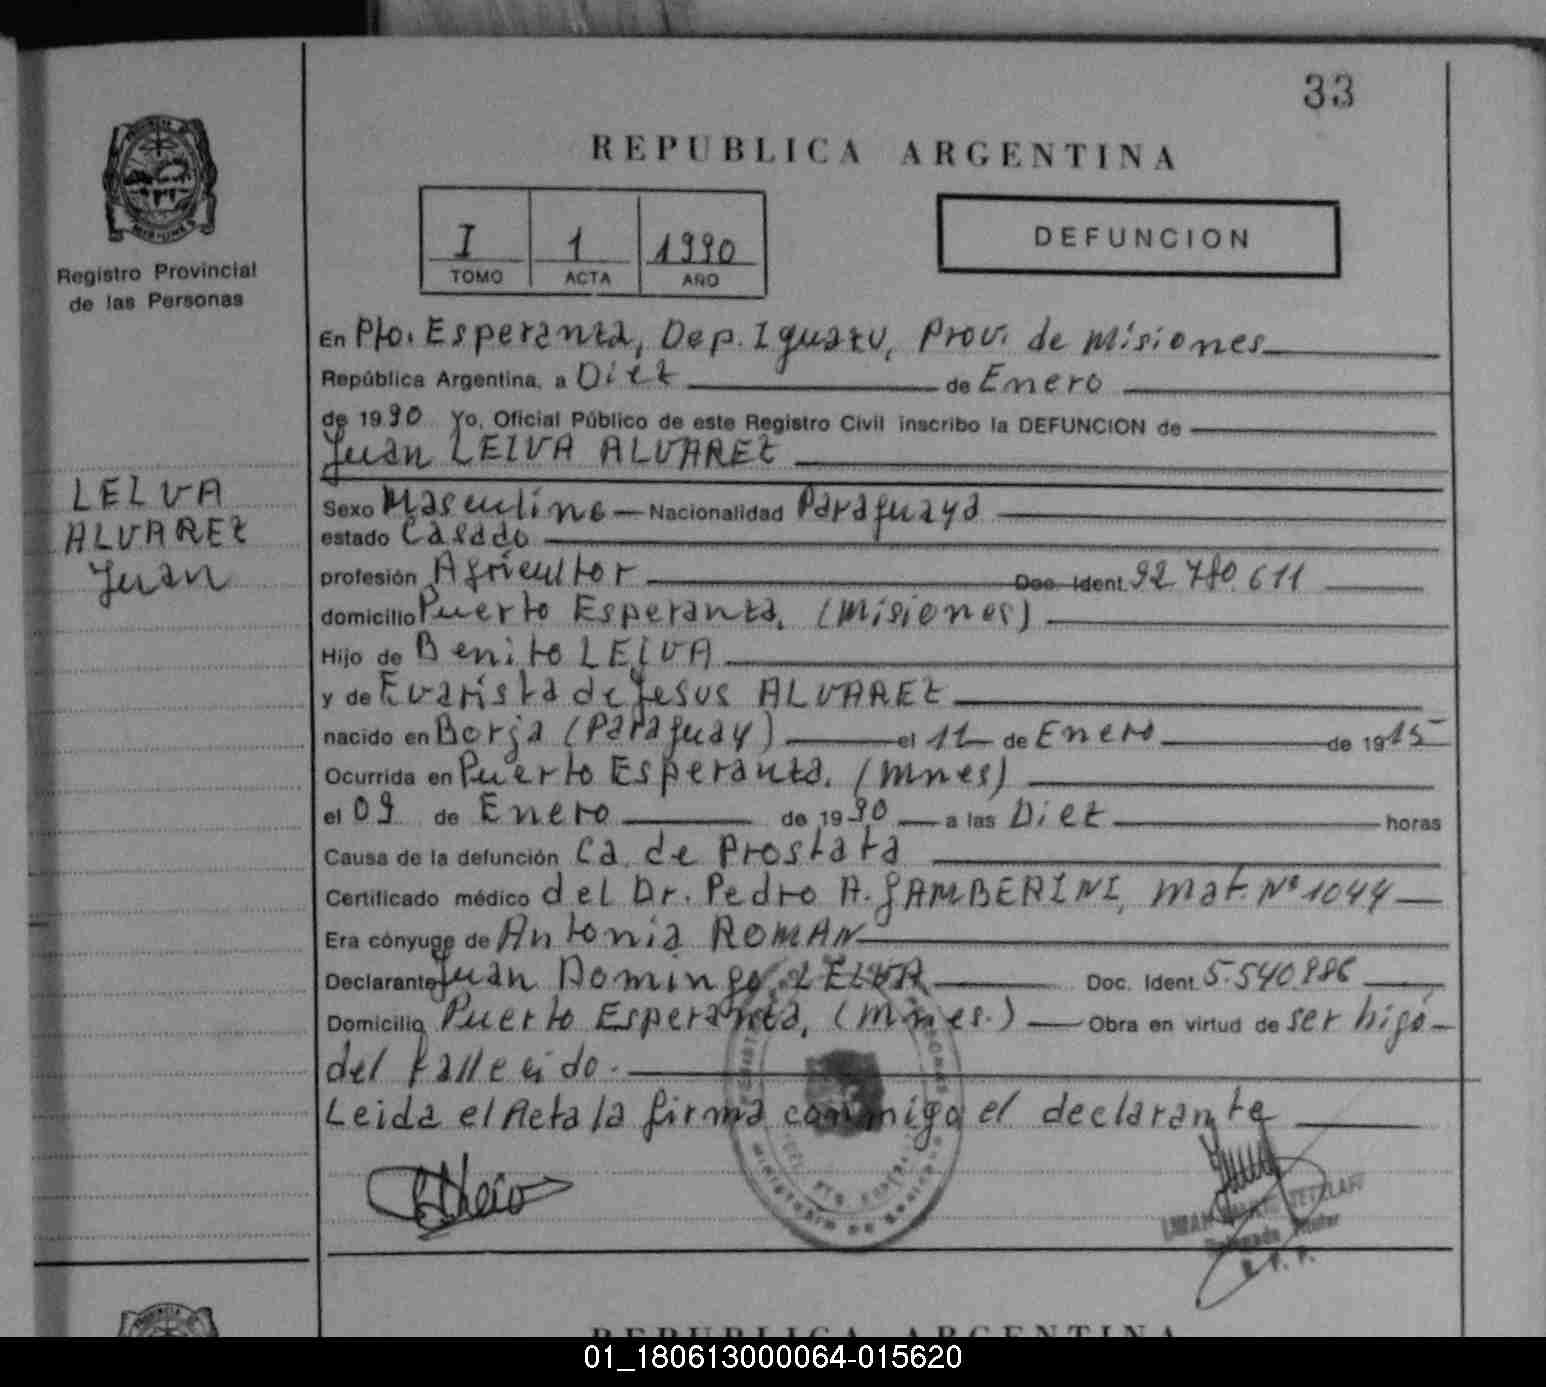 33
REPUBLICA ARGENTINA
I 1 1990
TOMO ACTA AÑO
DEFUNCION
Registro Provincial
de las Personas
LEIVA
ALVAREZ
Juan
En Pto. Esperanza, Dep. Iguazu, Prov. de Misiones
República Argentina, a Diez de Enero
de 1990 Yo, Oficial Público de este Registro Civil inscribo la DEFUNCION de
Juan LEIVA ALVAREZ
Sexo Masculino Nacionalidad Paraguaya
estado Casado
profesión Agricultor Doc. Ident. 92.780.611
domicilio Puerto Esperanza, (Misiones)
Hijo de Benito LEIVA
y de Evarista de Jesus ALVAREZ
nacido en Borja (Paraguay) el 11 de Enero de 1915
Ocurrida en Puerto Esperanza, (Mnes)
el 09 de Enero de 1990 a las Diez horas
Causa de la defunción Ca. de Prostata
Certificado médico del Dr. Pedro A. GAMBERINI, Mat. Nº 1044
Era cónyuge de Antonia ROMAN
Declarante Juan Domingo LEIVA Doc. Ident. 5.540.986
Domicilio Puerto Esperanza, (Mnes.) Obra en virtud de ser hijo
del fallecido.
Leida el Acta la firma conmigo el declarante
REPUBLICA ARGENTINA
01_180613000064-015620